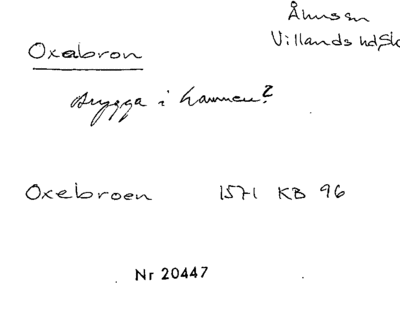 Åhussn
Villands hd, Sk
Oxabron
Brygga i hamnen?
Oxebroen 1571 KB 96
Nr 20447